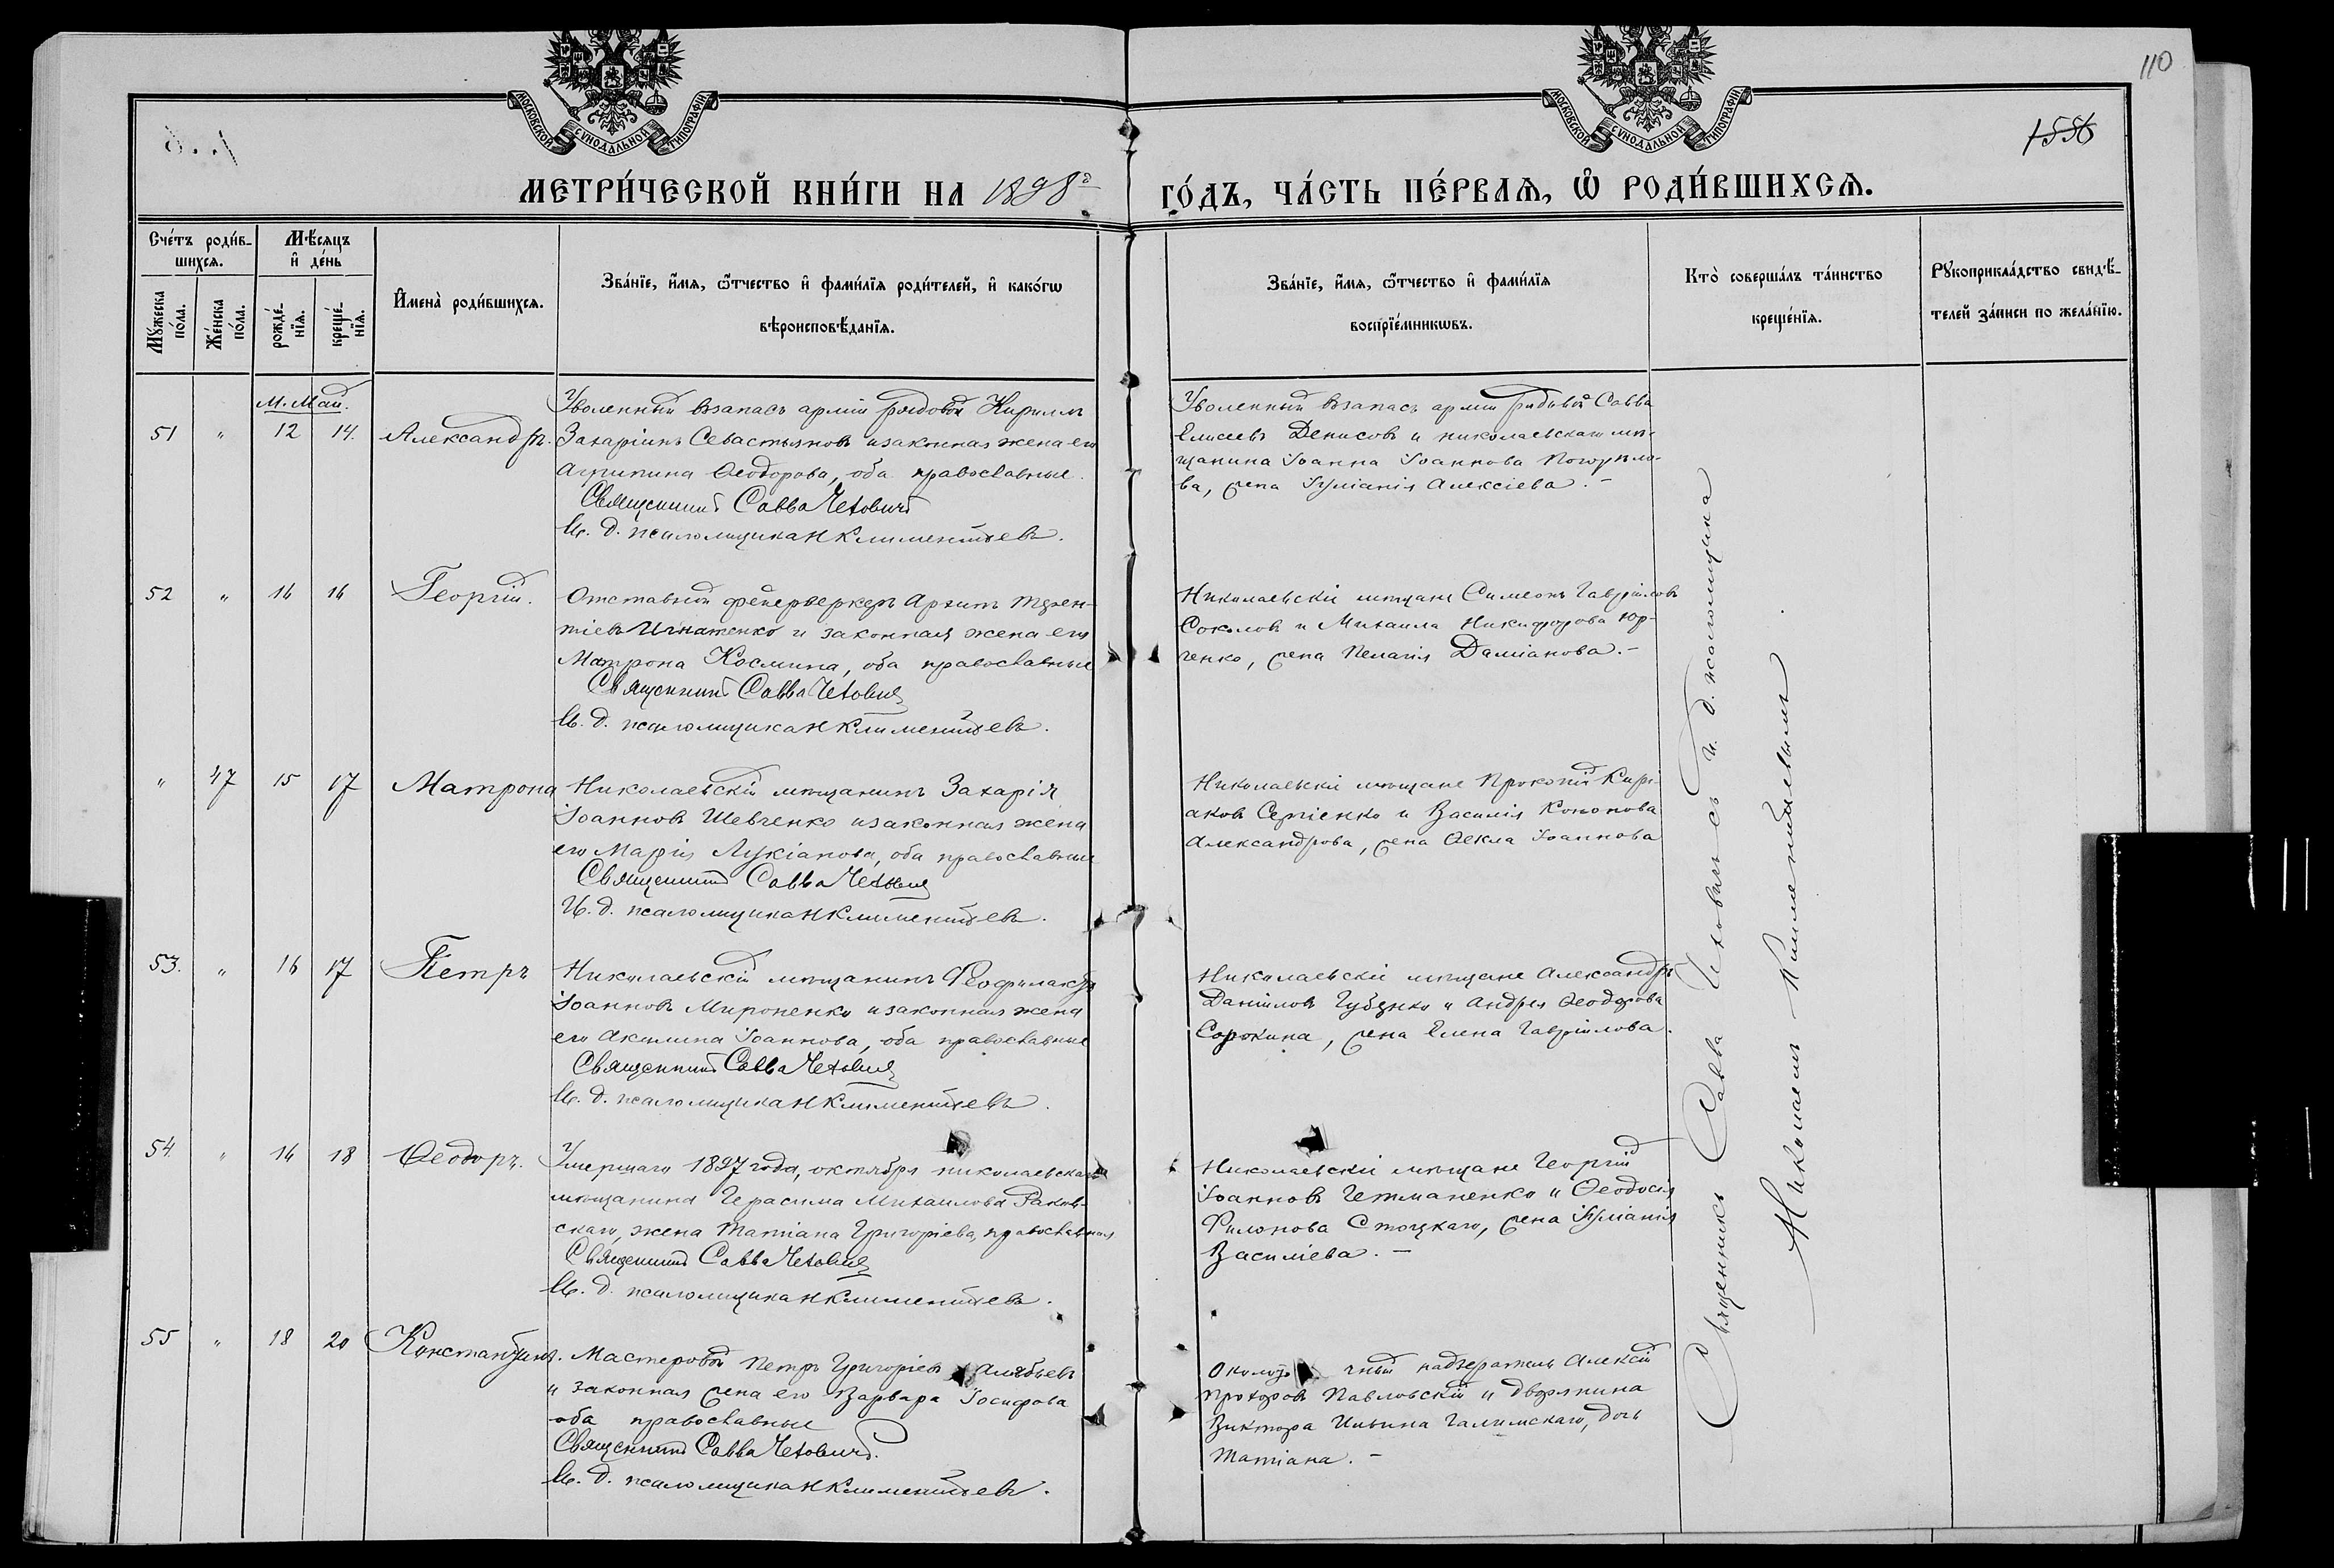 110
1556
МОСКОВСКОЙ СѴНОДАЛЬНОЙ ТИПОГРАФІИ
МОСКОВСКОЙ СѴНОДАЛЬНОЙ ТИПОГРАФІИ
МЕТРИ́ЧЕСКОЙ КНИ́ГИ НА 1898 г ГО́ДЪ, ЧА́СТЬ ПЕ́РВАѦ, Ѽ РОДИ́ВШИХСѦ.
Сче́тъ роди́в-
шихсѧ.
Мꙋжеска по́ла.
Же́нска по́ла.
Мѣ́сѧцъ и де́нь
рожде́-нїѧ.
креще́-нїѧ.
Имена̀ роди́вшихсѧ.
Зва́нїе, и́мѧ, ѻ́тчество и фами́лїѧ роди́телей, и како́гѡ
вѣроисповѣ́данїѧ.
Зва́нїе, и́мѧ, ѻ́тчество и фами́лїѧ
воспрїе́мникѡвъ.
Кто̀ соверша́лъ та́инство
креще́нїѧ.
Рꙋкоприкла́дство свидѣ́-
телей за́писи по жела́нїю.
М. Май.
51 " 12 14. Александръ.
Уволенный взапасъ арміи рядовой Кириллъ
Захаріинъ Севастьяновъ изаконная жена его
Агрипина Ѳеодорова, оба православные.
Священникъ Савва Чехович
И. д. псаломщика Н Климентьевъ.
Уволенный взапасъ арміи рядовой Савва
Елисеевъ Денисовъ и николаевскаго мѣ-
щанина Іоанна Іоаннова Погорѣло-
ва, жена Іуліанія Алексіева. -
52 " 14 16 Георгій.
Отставной фейерверкеръ Архипъ Терен-
тіевъ Игнатенко и законная жена его
Матрона Космина, оба православные
Священникъ Савва Чехович
И. д. псаломщика Н Климентьевъ.
Николаевскіе мѣщане Симеонъ Гавріиловъ
Соколовъ и Михаила Никифорова Юр-
ченко, жена Пелагія Даміанова. -
" 47 15 17 Матрона
Николаевскій мѣщанинъ Захарія
Іоанновъ Шевченко изаконная жена
его Марія Лукіанова, оба православные
Священникъ Савва Чехович
И. д. псаломщика Н Климентьевъ.
Николаевскіе мѣщане Прокопій Кирі-
аковъ Сергіенко и Василія Кононова
Александрова, жена Ѳекла Іоаннова
53. " 16 17 Петръ
Николаевскій мѣщанинъ Феофилактъ
Іоанновъ Мироненко изаконная жена
его Акилина Іоаннова, оба православные
Священникъ Савва Чехович
И. д. псаломщика Н Климентьевъ.
Николаевскіе мѣщане Александръ
Даніиловъ Губенко и Андрея Ѳеодорова
Сорокина, жена Елена Гавріилова.
54 " 14 18 Ѳеодоръ.
Умершаго 1897 года, октября николаевскаго
мѣщанина Герасима Михаилова Раков-
скаго, жена Татіана Григоріева, православная
Священникъ Савва Чехович
И. д. псаломщика Н Климентьевъ.
Николаевскіе мѣщане Георгій
Іоанновъ Гетманенко и Ѳеодосія
Филонова Стоцкаго, жена Іуліанія
Василіева. -
55 " 18 20 Константинъ.
Мастеровой Петръ Григоріевъ Алябьевъ
и законная жена его Варвара Іосифова
оба православные
Священникъ Савва Чехович.
И. д. псаломщика Н Климентьевъ.
Около чный надзератель Алексій
Прохоровъ Павловскій и дворянина
Виктора Ильина Галимскаго, дочь
Татіана. -
Священникъ Савва Чеховичъ съ и. д. псаломщика
Николаемъ Климентьевымъ